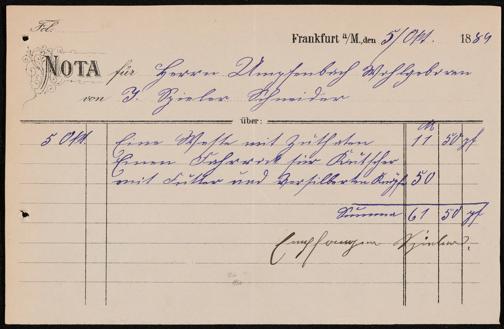 Fol.
Frankfurt a/M., den 5/Okt. 1889
NOTA für Herrn Umpfenbach Wohlgeboren
von J. Spieler Schneider
über:
M
5 Okt. Eine Weste mit Zuthaten 11 50 pf
Einen Fahrrock für Kutscher
mit Futter und versilberten Knöpf. 50
Summa 61 50 pf
Empfangen Spieler.